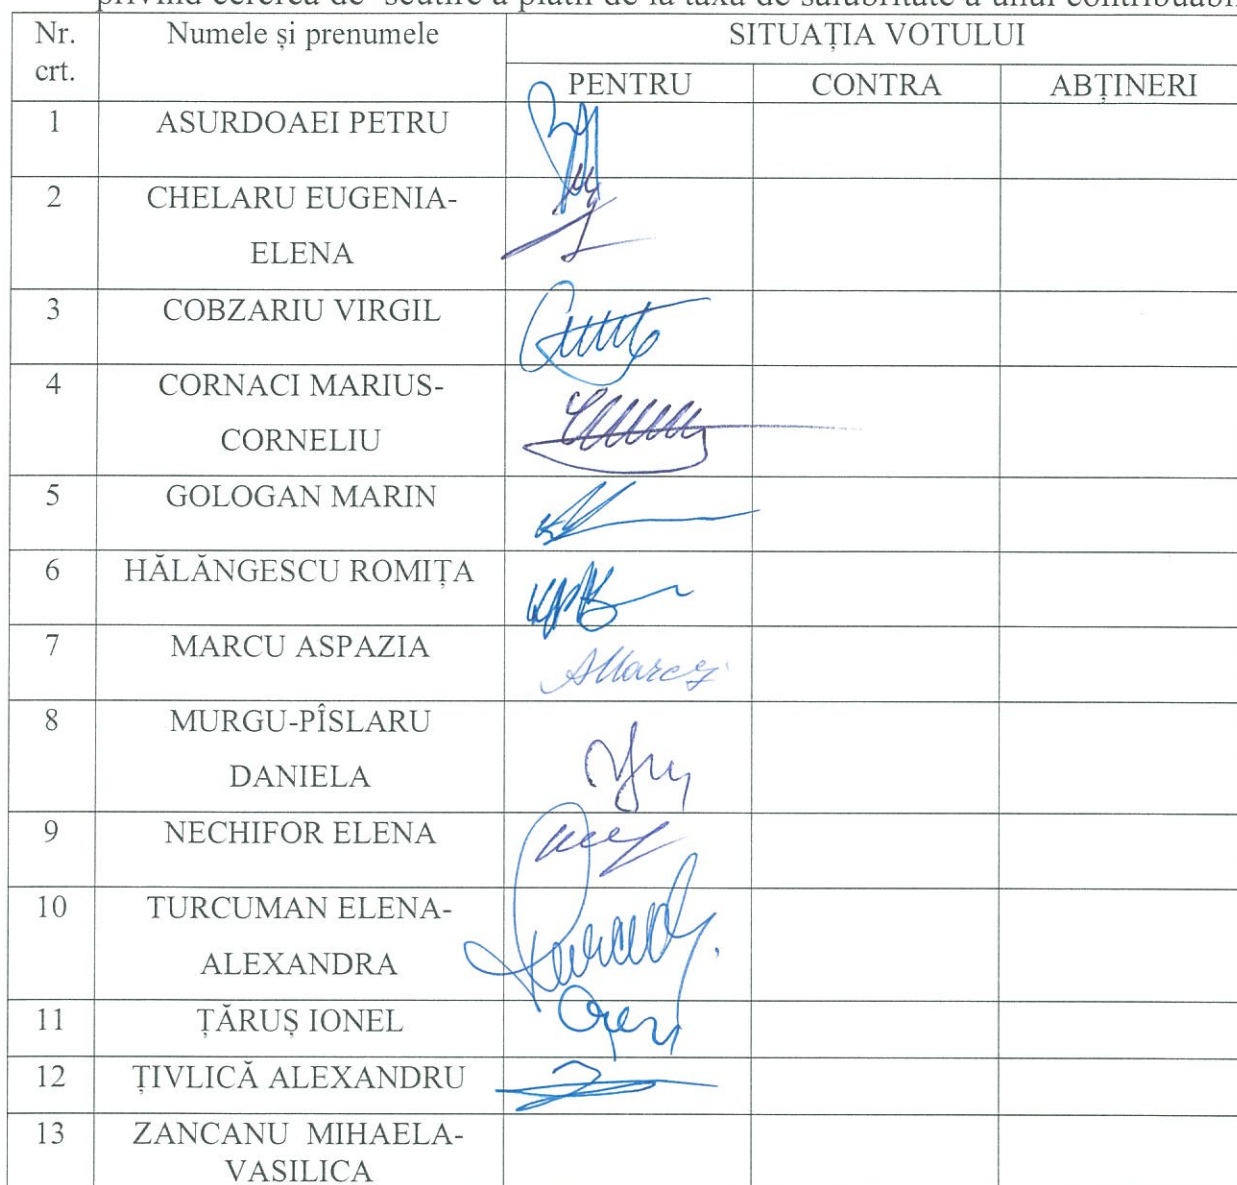 privind cererea de scutire a plății de la taxa de salubritate a unui contribuabil
Nr. crt. Numele și prenumele SITUAȚIA VOTULUI
PENTRU CONTRA ABȚINERI
1 ASURDOAEI PETRU
2 CHELARU EUGENIA-
ELENA
3 COBZARIU VIRGIL
4 CORNACI MARIUS-
CORNELIU
5 GOLOGAN MARIN
6 HĂLĂNGESCU ROMIȚA
7 MARCU ASPAZIA
AMarcu
8 MURGU-PÎSLARU
DANIELA
9 NECHIFOR ELENA
10 TURCUMAN ELENA-
ALEXANDRA
11 ȚĂRUȘ IONEL
12 ȚIVLICĂ ALEXANDRU
13 ZANCANU MIHAELA-
VASILICA